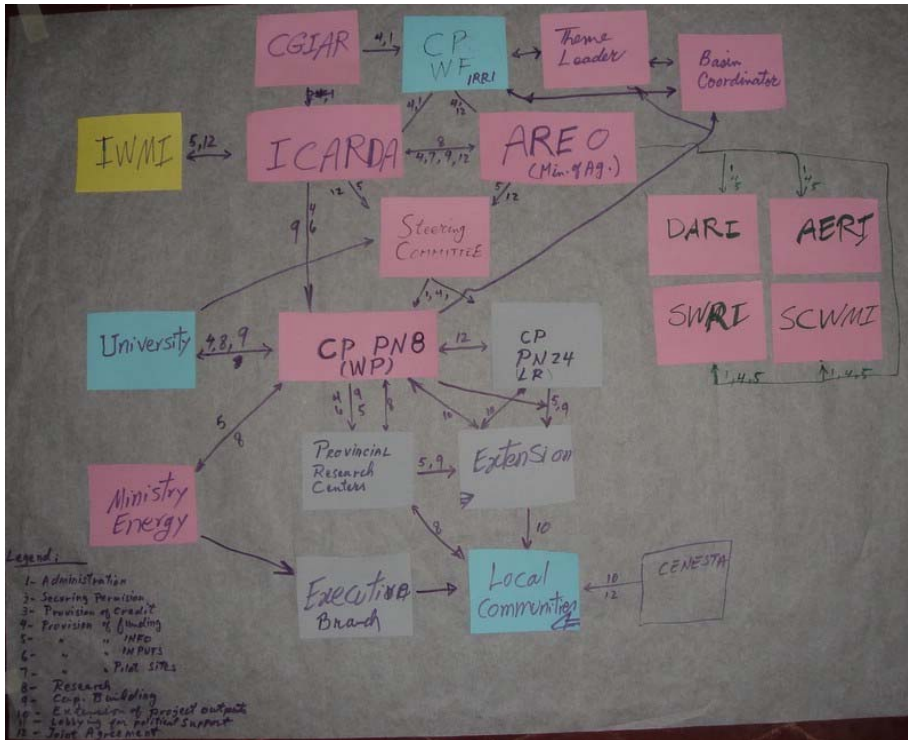 CGIAR
4,1
CP
WF
IRRI
Theme
Leader
Basin
Coordinator
IWMI
5,12
ICARDA
4,1
4,
12
8
4,7,9,12
AREO
(Min. of Ag.)
12
5
5
12
Steering
COMMITTEE
9
4
6
1,4,
DARI
AERI
SWRI
SCWMI
1,4,5
1,4,5
University
4,8,9
CP PN8
(WP)
12
CP
PN24
LR
5
8
4
6
9
5
8
10
10
5,9
Ministry
Energy
Provincial
Research
Centers
5,9
Extension
8
10
Executive
Branch
Local
Communities
10
12
CENESTA
Legend:
1- Administration
2- Securing Permision
3- Provision of Credit
4- Provision of funding
5- " " INFO
6- " " INPUTS
7- " " Pilot Sites
8- Research
9- Cap. Building
10- Extension of project outputs
11- Lobbying for political Support
12- Joint Agreement